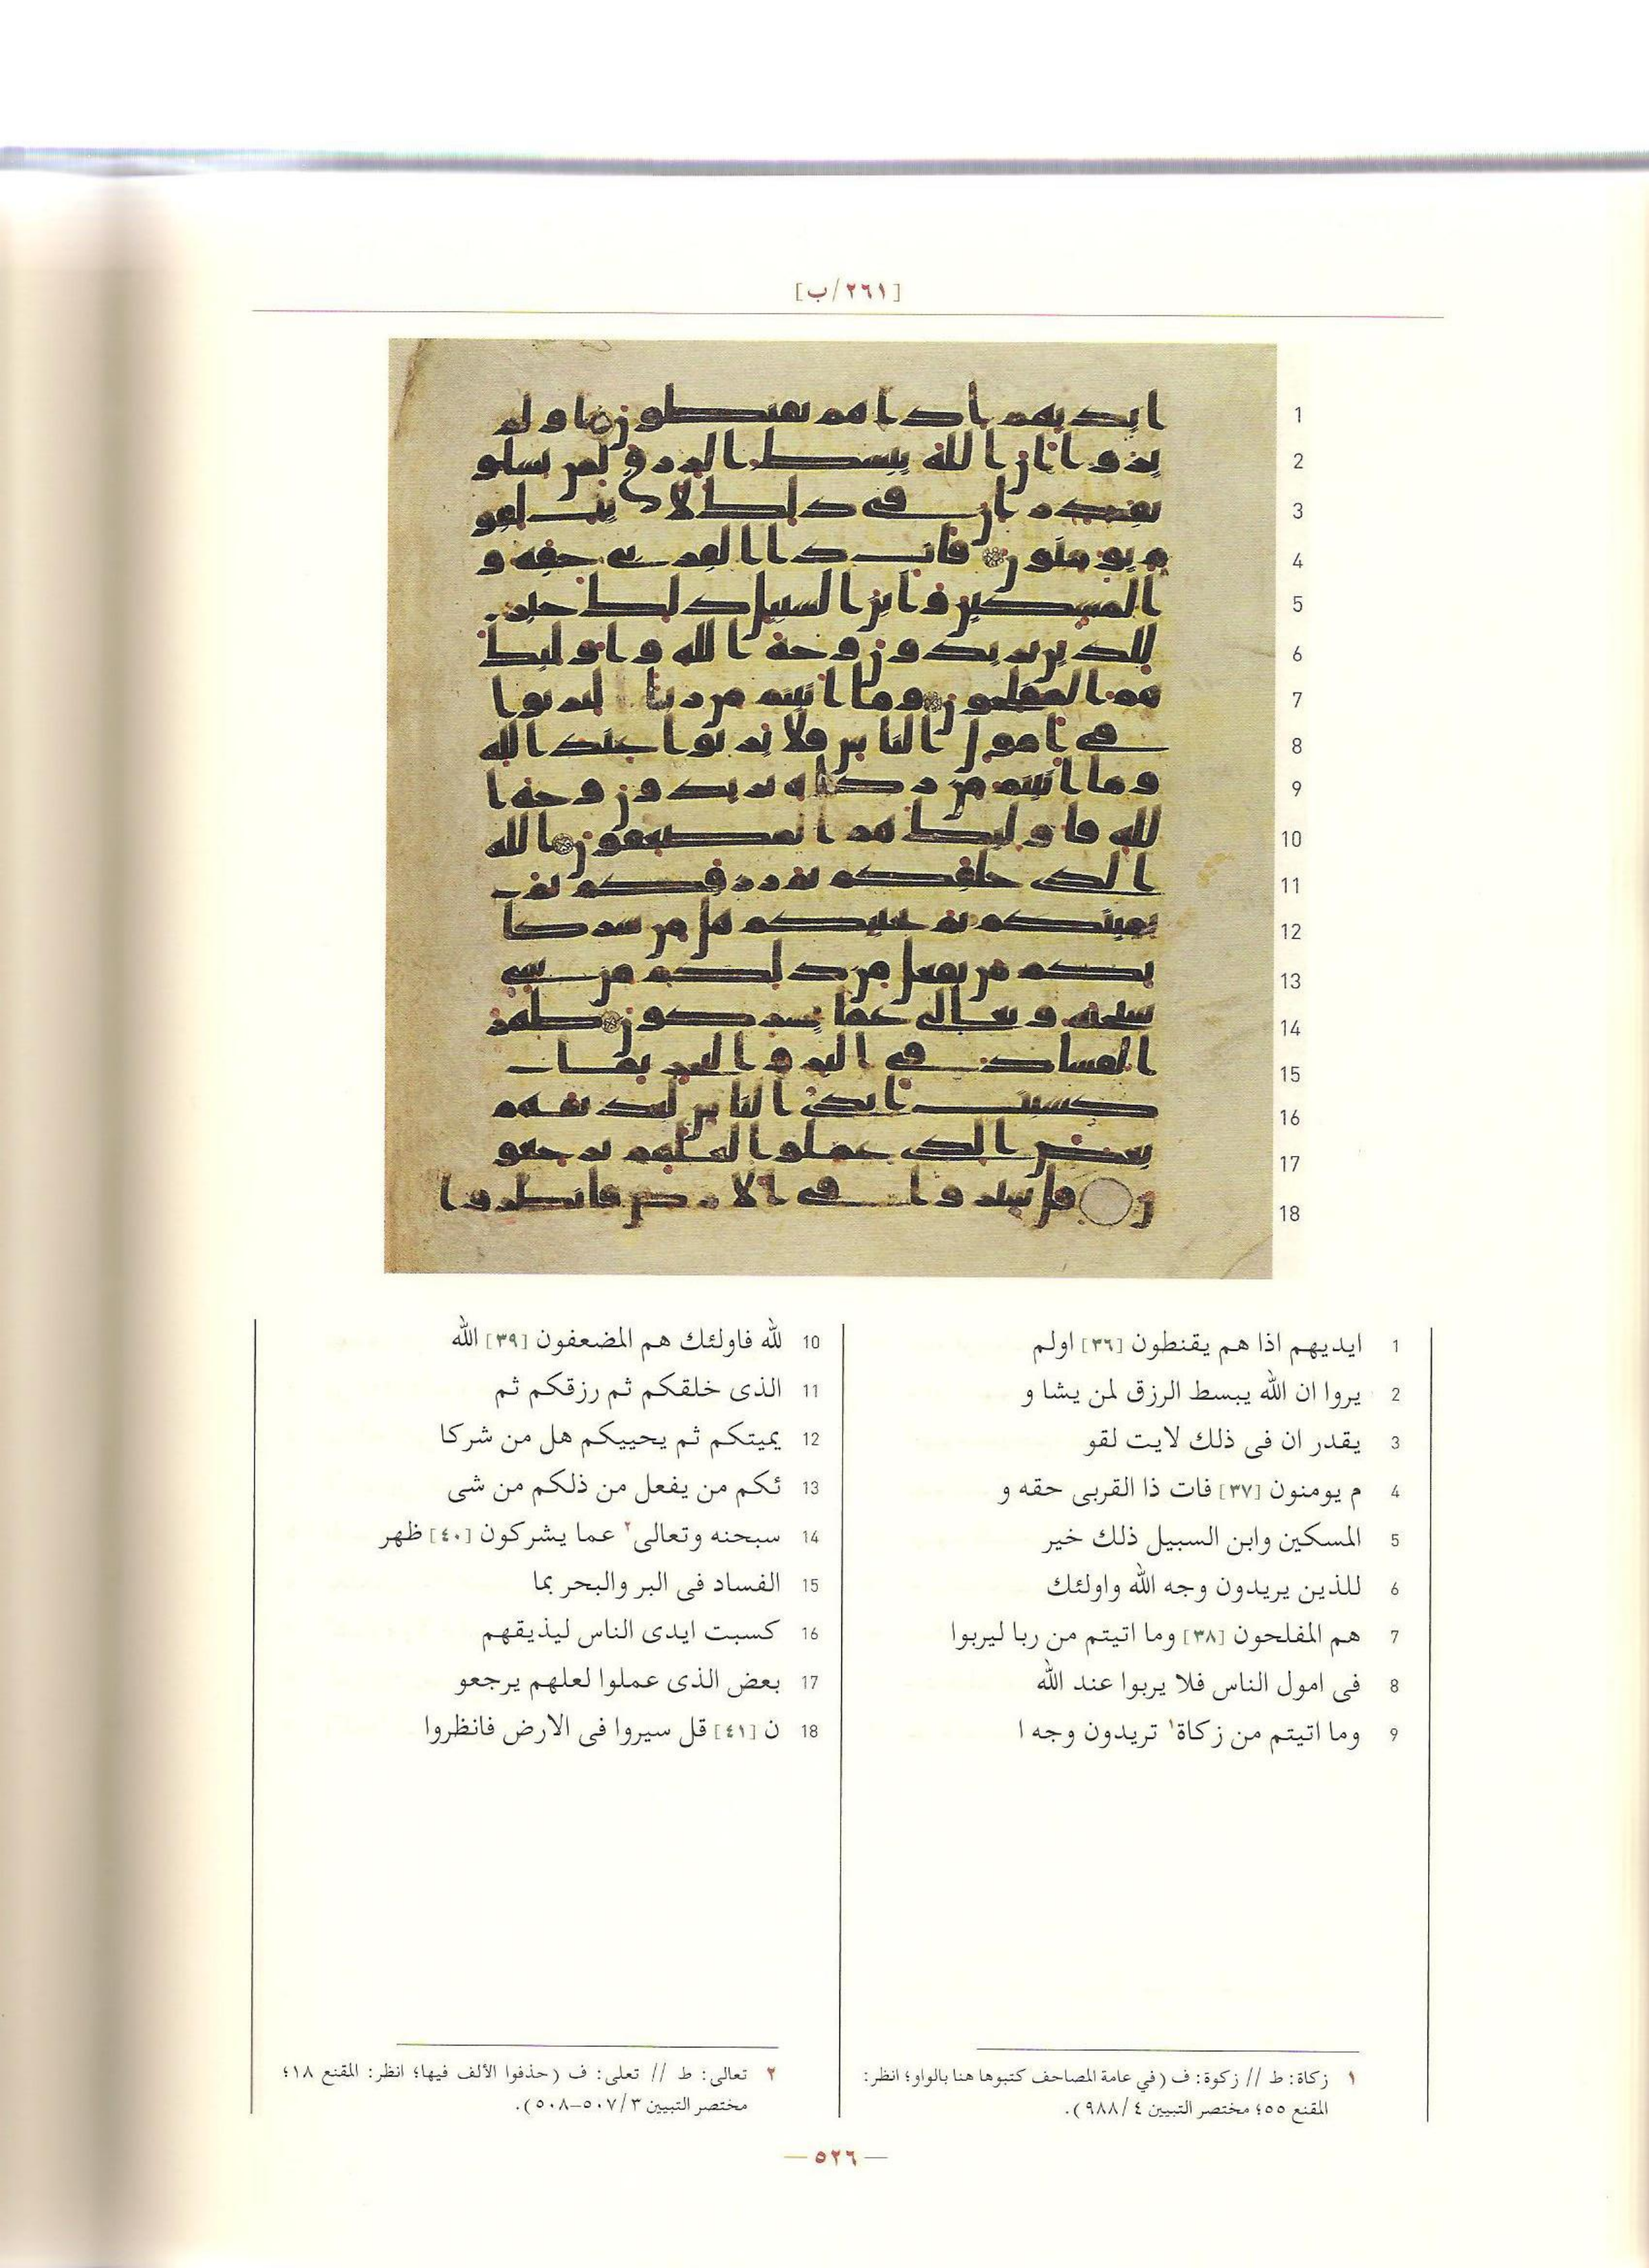 [٢٦١/ب]
1 ايديهم اذا هم يقنطون [٣٦] اولم
2 يروا ان الله يبسط الرزق لمن يشا و
3 يقدر ان فى ذلك لايت لقو
4 م يومنون [٣٧] فات ذا القربى حقه و
5 المسكين وابن السبيل ذلك خير
6 للذين يريدون وجه الله واولئك
7 هم المفلحون [٣٨] وما اتيتم من ربا ليربوا
8 فى امول الناس فلا يربوا عند الله
9 وما اتيتم من زكاة١ تريدون وجه ا
10 لله فاولئك هم المضعفون [٣٩] الله
11 الذى خلقكم ثم رزقكم ثم
12 يميتكم ثم يحييكم هل من شركا
13 ئكم من يفعل من ذلكم من شى
14 سبحنه وتعالى٢ عما يشركون [٤٠] ظهر
15 الفساد فى البر والبحر بما
16 كسبت ايدى الناس ليذيقهم
17 بعض الذى عملوا لعلهم يرجعو
18 ن [٤١] قل سيروا فى الارض فانظروا
١ زكاة: ط // زكوة: ف (في عامة المصاحف كتبوها هنا بالواو؛ انظر:
المقنع ٥٥؛ مختصر التبيين ٤/ ٩٨٨).
٢ تعالى: ط // تعلى: ف (حذفوا الألف فيها؛ انظر: المقنع ١٨؛
مختصر التبيين ٣/ ٥٠٧-٥٠٨).
— ٥٢٦ —